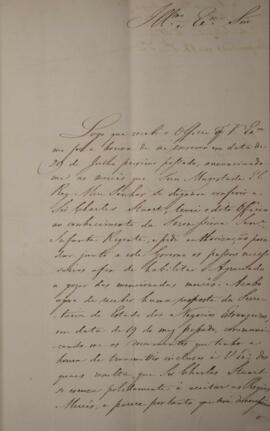 Illmo e Exmo Snr
Logo que recebi o Officio q̃ V. Exa
me fez a honra de me escrever em data de
29 de Julho proximo passado, annunciando
me as mercês que Sua Magestade El
Rey Meu Senhor Se dignara conferir a
Sir Charles Stuart, levei o dito Officio
ao conhecimento da Serenissima Snra
Infanta Regente, e pedi authorização para
dar junto a este Governo os passos neces
sarios afim de habilitar o Agraciado
a gozar das mencionadas mercês. Acabo
agora de receber huma resposta da Secre
taria de Estado dos Negocios Estrangeiros,
em data de 19 do mez passado, communi
cando me os documentos que tenho a
honra de transmittir inclusos a V. Exa, dos
quaes resulta, que Sir Charles Stuart
se escusa polidamente a aceitar as Regias
Mercês, e parece por tanto que